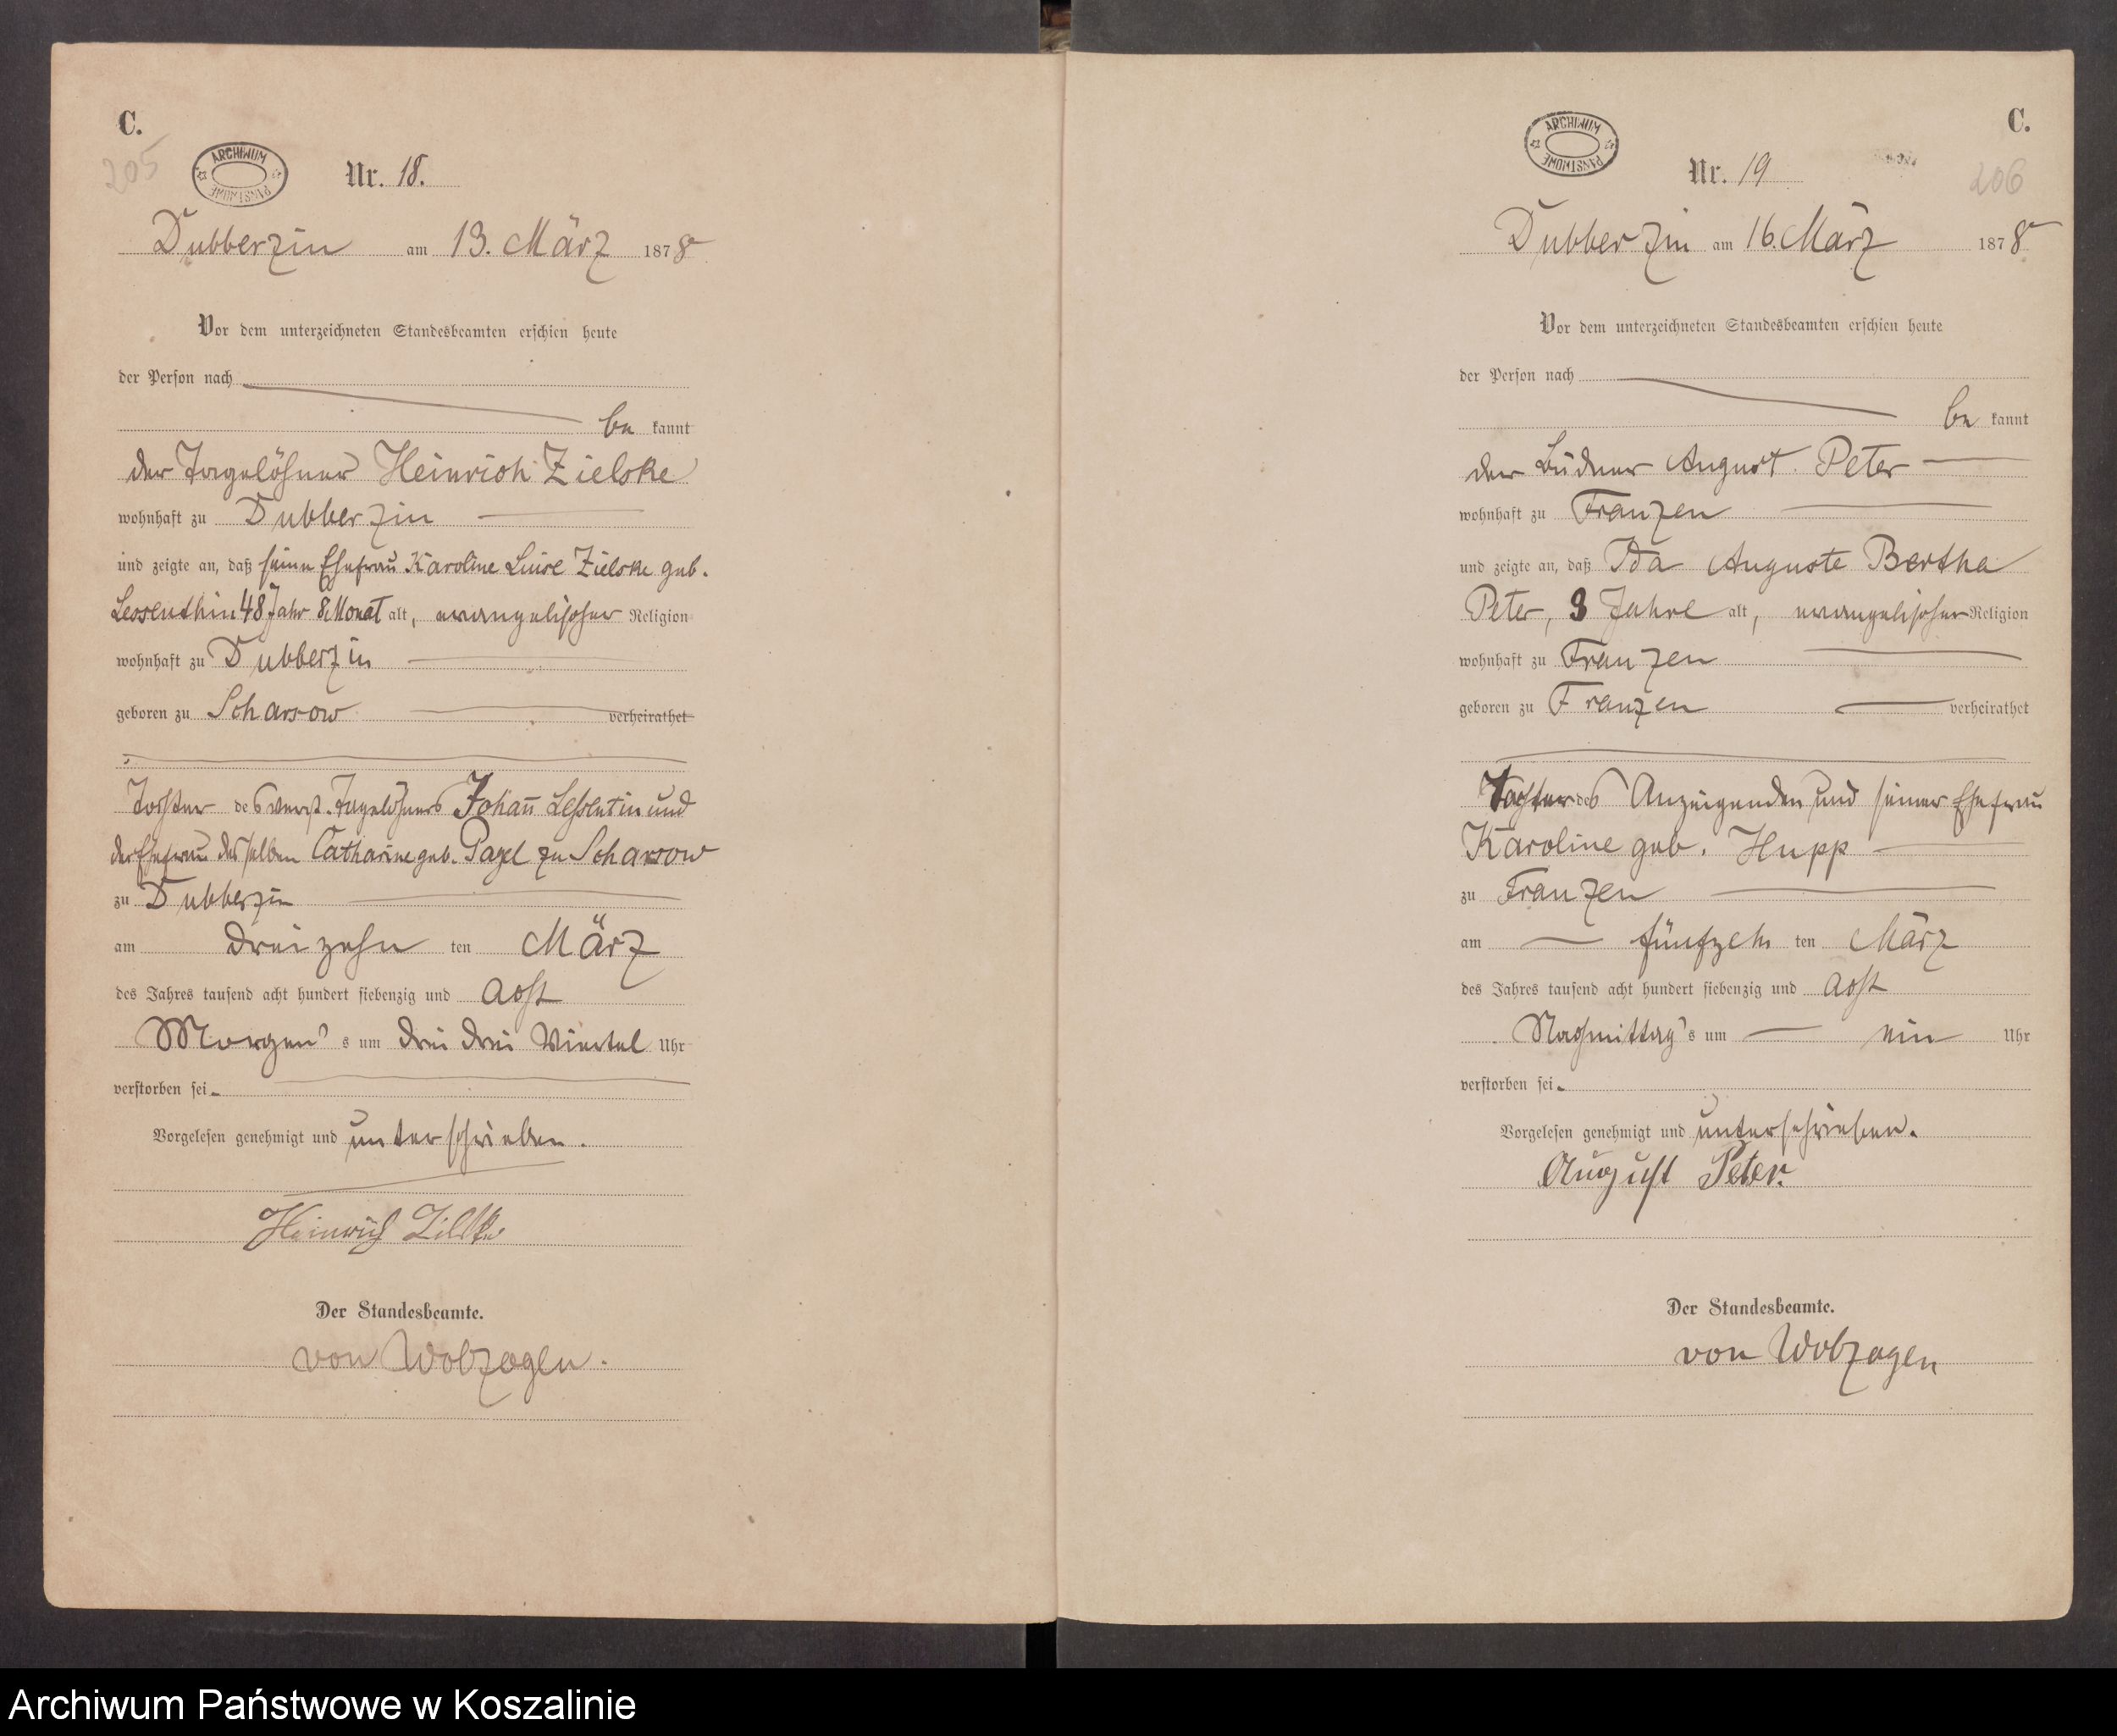 C.
205
ARCHIWUM
PAŃSTWOWE
Nr. 18.
Dubberzin am 13. März 1878
Vor dem unterzeichneten Standesbeamten erschien heute
der Person nach
be kannt
der Tagelöhner Heinrich Zielske
wohnhaft zu Dubberzin
und zeigte an, daß seine Ehefrau Karoline Luise Zielske geb.
Lessenthin 48 Jahr 8 Monat alt, evangelischer Religion
wohnhaft zu Dubberzin
geboren zu Scharsow verheirathet
Tochter des verst. Tagelöhners Johañ Lessentin und
der Ehefrau desselben Catharine geb. Pagel zu Scharsow
zu Dubberzin
am dreizehn ten März
des Jahres tausend acht hundert siebenzig und acht
Morgen's um drei drei Viertel Uhr
verstorben sei.
Vorgelesen genehmigt und unterschrieben.
Heinrich Zilske
Der Standesbeamte.
von Wolzogen.
C.
206
ARCHIWUM
PAŃSTWOWE
Nr. 19
Dubberzin am 16. März 1878
Vor dem unterzeichneten Standesbeamten erschien heute
der Person nach
be kannt
der Büdner August Peter
wohnhaft zu Franzen
und zeigte an, daß Ida Auguste Bertha
Peter, 3 Jahre alt, evangelischer Religion
wohnhaft zu Franzen
geboren zu Franzen verheirathet
Tochter des Anzeigenden und seiner Ehefrau
Karoline geb. Hupp
zu Franzen
am fünfzehn ten März
des Jahres tausend acht hundert siebenzig und acht
Nachmittag's um ein Uhr
verstorben sei.
Vorgelesen genehmigt und unterschrieben.
August Peter.
Der Standesbeamte.
von Wolzogen
Archiwum Państwowe w Koszalinie